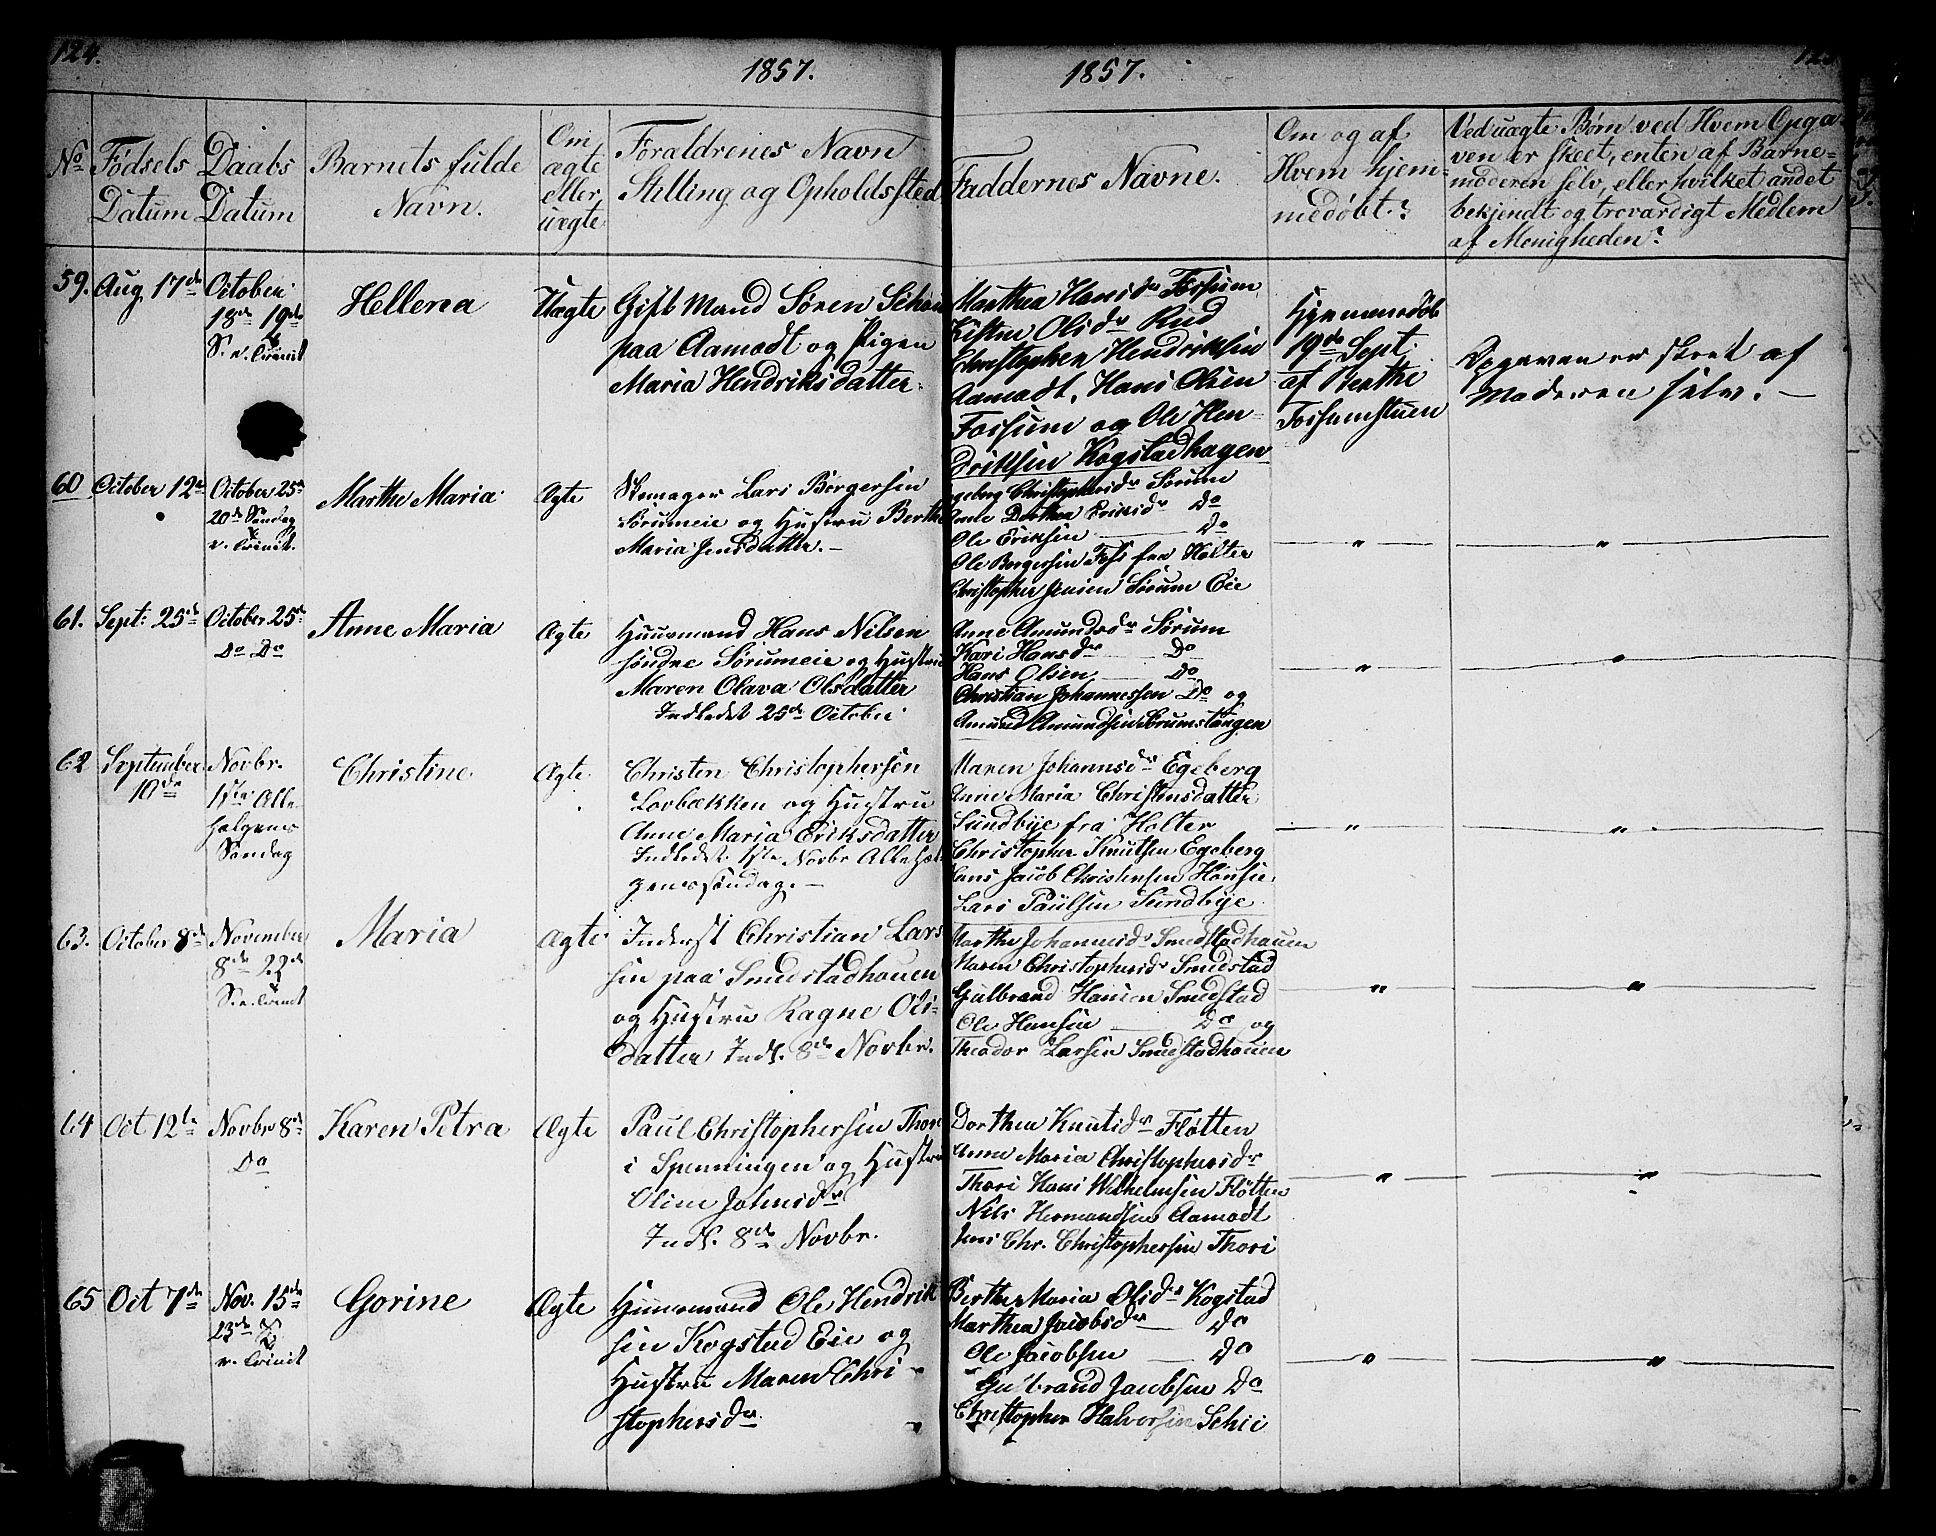 124.
1857.
No
Fødsels
Datum
Daabs
Datum
Barnets fulde
Navn.
Om
ægte
eller
uægte
Forældrenes Navn
Stilling og Opholdssted
59.
Aug 17de
October
18de 19de
S. e. Trinit
Hellena
Uægte
Gift Mand Søren
paa Aamodt og Pigen
Maria Hendriksdatter.
60
October 12te
October 25de
20de Søndag
e. Trinit.
Marthe Maria
Ægte
Skomager Lars Børgersen
Sørumeie og Hustru Berthe
Maria Jensdatter. –
61.
Sept: 25de
October 25de
Do Do
Anne Maria
Ægte
Huusmand Hans Nilsen
søndre Sørumeie og Hustru
Maren Olava Olsdatter
Indledet 25de October
62
September
10de
Novbr.
1ste Alle
helgens
Søndag
Christine
Ægte
Christen Christophersen
Lovbækken og Hustru
Anne Maria Eriksdatter
Indledet 1ste Novbr Allehel
genssøndag. –
63.
October 8de
November
8de 22de
S. e. Trinit
Maria
Ægte
Inderst Christian Lar
sen paa Smedstadhouen
og Hustru Ragne Ols
datter Indl. 8de Novbr.
64
Oct 12te
Novbr 8de
Do
Karen Petra
Ægte
Paul Christophersen Thori
i Spenningen og Hustru
Oline Johnsdr
Indl. 8de Novbr.
65
Oct 7de
Nov. 15de
23de S
e. Trinit
Gorine
Ægte
Huusmand Ole Hendrik
sen Kogstad Eie og
Hustru Maren Chri
stophersdr
1857.
Faddernes Navne.
Om og af
Hvem hjem-
medøbt?
Ved uægte Børn ved Hvem Opga
ven er skeet, enten af Barne-
moderen selv, eller hvilket andet
bekjendt og troværdigt Medlem
af Menigheden?
Marthea Hansdr Fossum
Kisten Olsdr Rud
Christopher Hendriksen
Aamodt, Hans Olsen
Fossum og Ole Hen
driksen Kogstadhagen
Hjemmedøb
19de Sept.
af Berthe
Fossumstuen
Opgaven er skeet af
Moderen selv. –
Ingeborg Christophersdr Sørum
Anne Dorthea Eriksdr Do
Ole Eriksen Do
Ole Børgersen Foss fra Holter
Christopher Jensen Sørum Eie
"
"
Anne Amundsdr Sørum
Kari Hansdr Do
Hans Olsen Do
Christian Johannessen Do og
Amund Amundsen Sørumstangen
"
"
Maren Johannsdr Egeberg
Anne Maria Christensdatter
Sundbye fra Holter
Christopher Knutsen Egeberg
Hans Jacob Christensen
Lars Paulsen Sundbye
"
"
Marthe Johannesdr Smedstadhouen
Maren Christophersdr Smedstad
Gulbrand Hansen Smedstad
Ole Hansen Do og
Theodor Larsen Smedstadhouen
"
"
Dorthea Knutsdr Fløtten
Anne Maria Christophersdr
Thori Hans Wilhelmsen Fløtten
Nils Hermandsen Aamodt
Jens Chr. Christophersen Thori
"
"
Berthe Maria Olsdr Kogstad
Marthea Jacobsdr Do
Ole Jacobsen Do
Gulbrand Jacobsen Do
Christopher Halvorsen
"
"